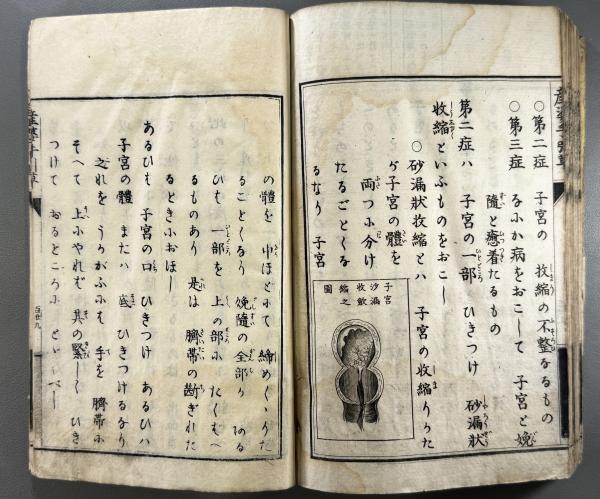 ○第二症 子宮の 收縮の不整なるもの
○第三症 なふか病をおこして 子宮と娩
隨と癒着たるもの
第二症ハ 子宮の一部 ひきつけ 砂漏狀
收縮といふものをおこし
○砂漏狀收縮とハ 子宮の收縮りかた
ヶ子宮の體を
両つふ分け
たるごとくる
るなり 子宮
子宮
沙漏
收歛
縮之
圖
の體を 中ほどにて 締めくゝりた
ることくなり 娩隨の全部り のる
ひも 一部を 上の部ふ たくむへ
るものあり 是は 臍帯の断ぎれた
るときふおほし
あるひも 子宮の口 ひきつけ あるひハ
子宮の體 または 底 ひきつけるなり
之れを うかがふふも 手を 臍帯ふ
そへて 上ふやれむ 其の緊しく ひき
つけて おるところふ とゞくべし
百廿九